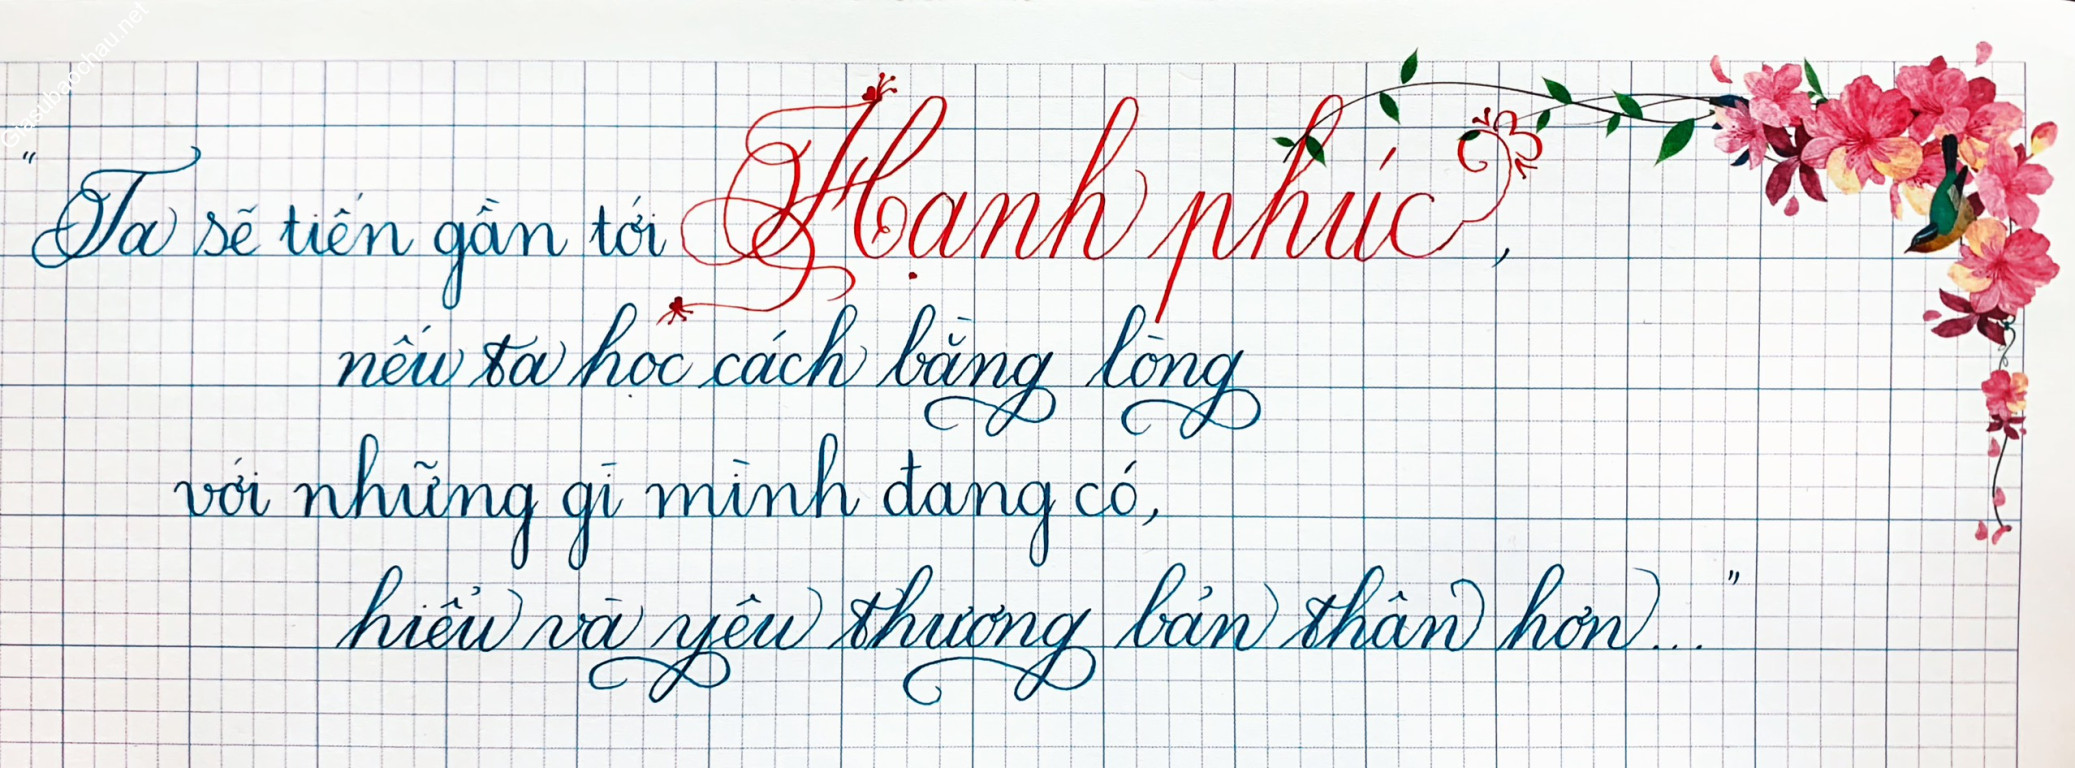 Giasubaochau.net
"Ta sẽ tiến gần tới Hạnh phúc,
nếu ta học cách bằng lòng
với những gì mình đang có,
hiểu và yêu thương bản thân hơn..."